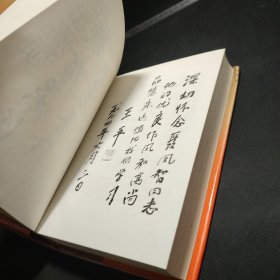 深切怀念聂凤智同志
他的优良作风和高尚
品德永远值我们学习
王平
一九九四年六月二日